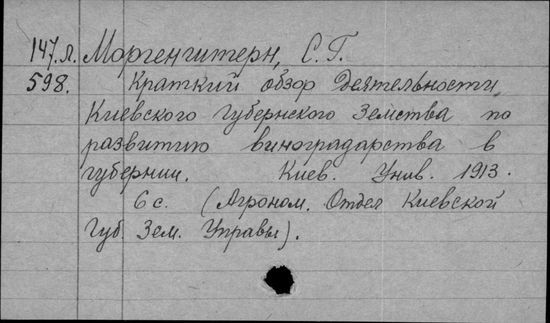 147.л. Моргенштерн, С.Г.
598. Краткий обзор деятельности,
Киевского губернского земства по
развитию виноградарства в
губернии. Киев. Унив. 1913.
6 с. (Агроном. Отдел Киевской
Губ. Зем. Управы).